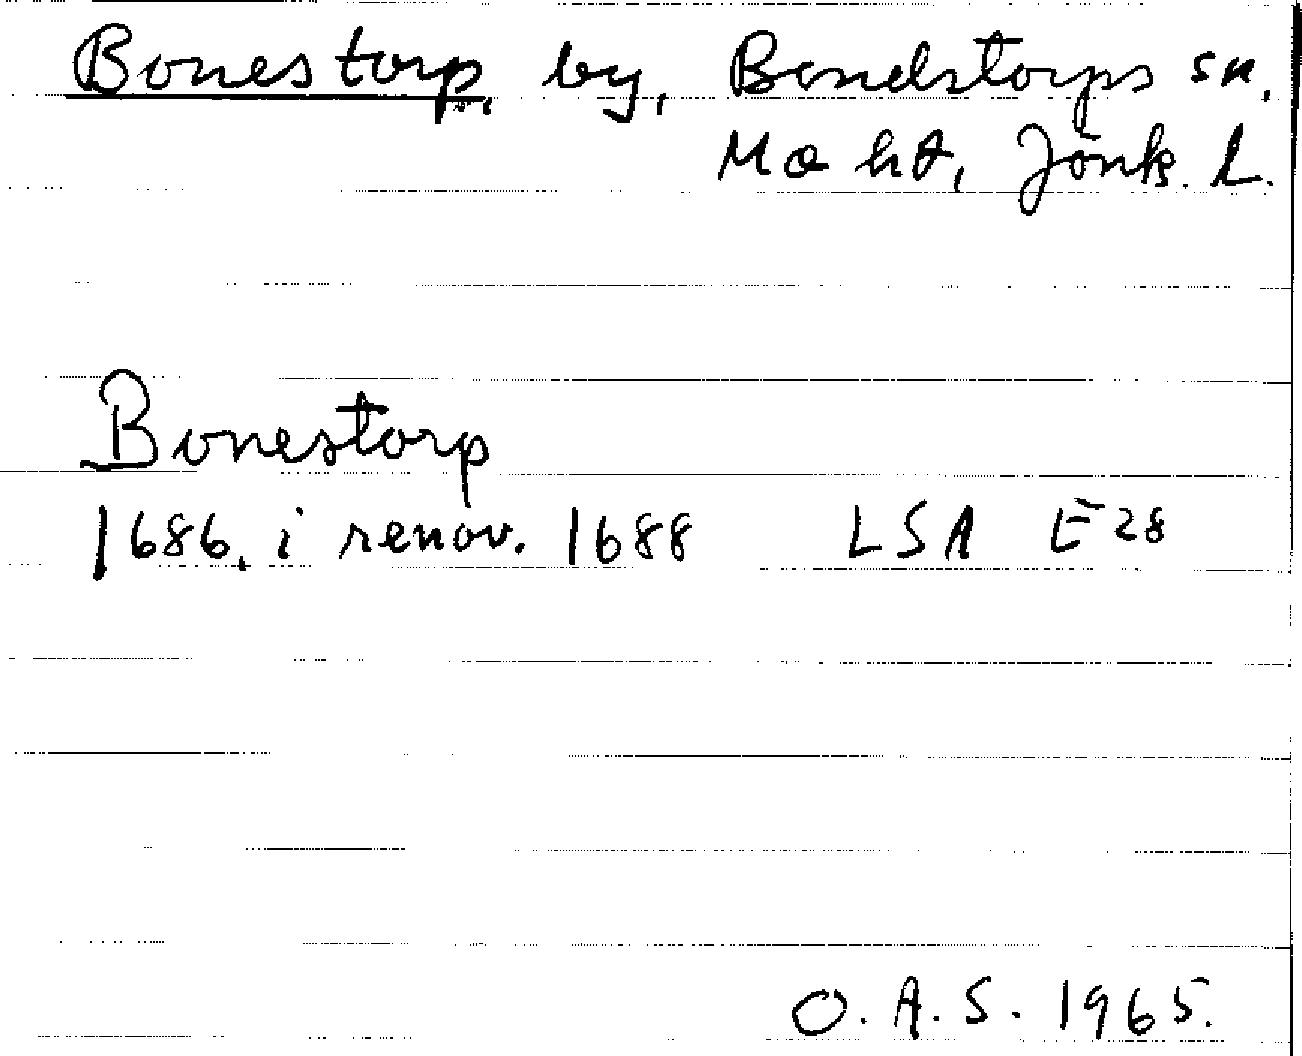 Bonestorp, by, Bondstorps sn,
Mo hd, Jönk. L.
Bonestorp
1686, i renov. 1688 LSA E28
O. A. S. 1965.